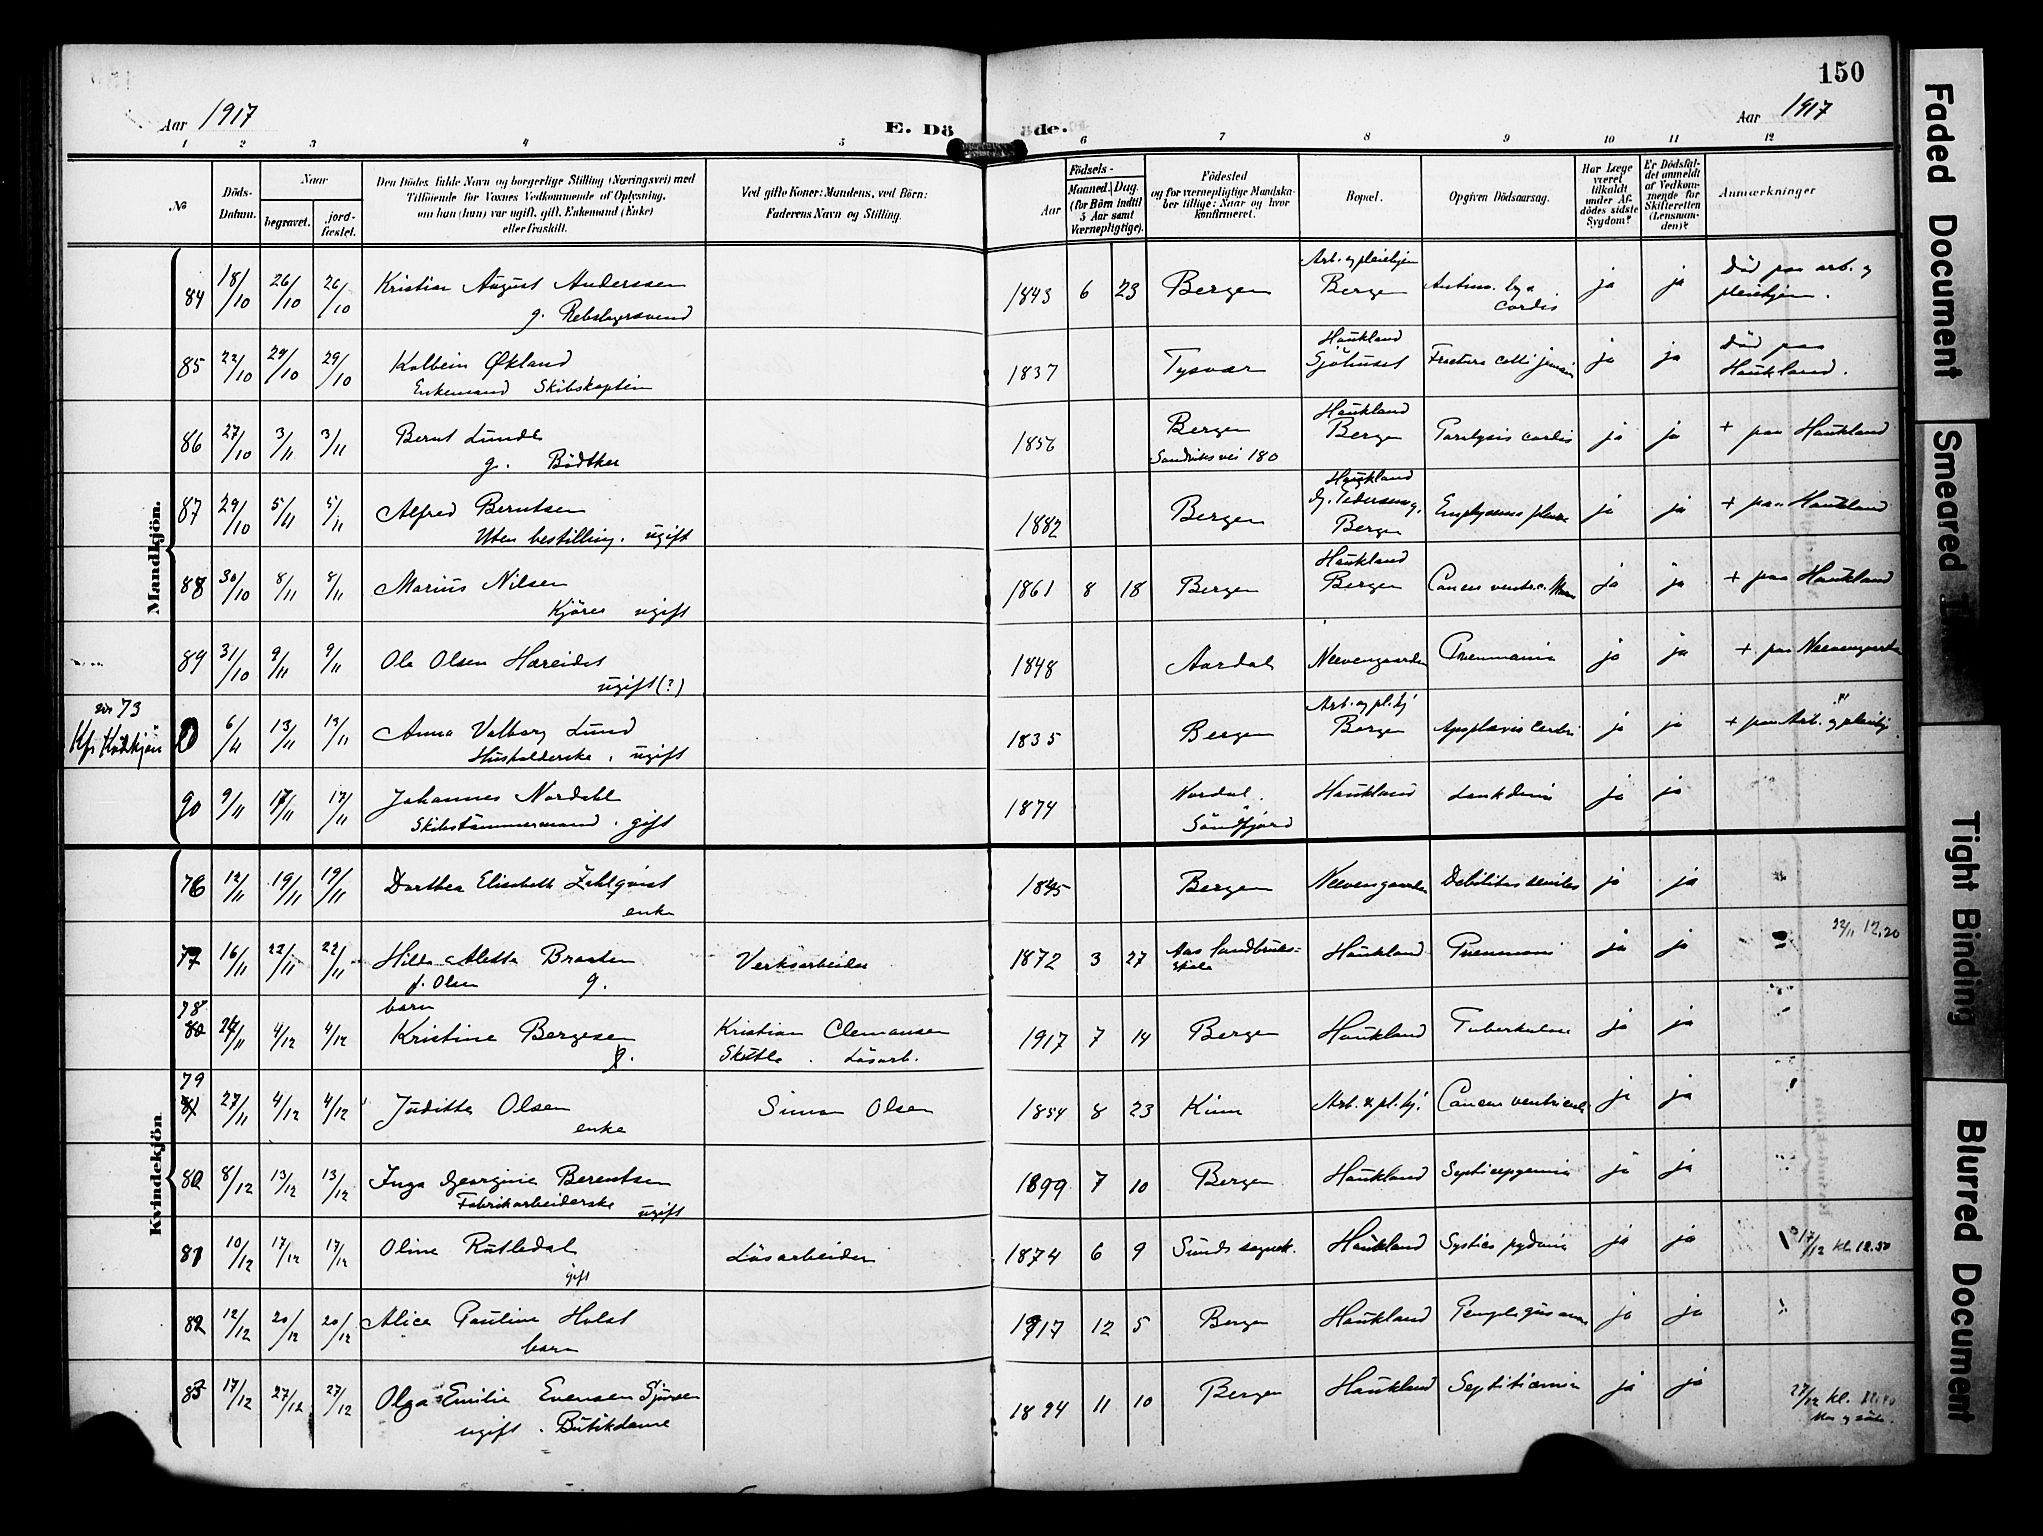 150
Aar 1917
E. Döde.
Aar 1917
1 2 3 4 5 6 7 8 9 10 11 12
No
Döds-Datum.
Naar
begravet.
jord-fæstet.
Den Dödes fulde Navn og borgerlige Stilling (Næringsvei) med
Tilföiende for Voxnes Vedkommende af Oplysning,
om han (hun) var ugift, gift, Enkemand (Enke)
eller fraskilt.
Ved gifte Koner: Mandens, ved Börn:
Faderens Navn og Stilling.
Födsels-
Aar
Maaned. Dag.
(for Börn indtil
5 Aar samt
Værnepligtige).
Födested
og for værnepligtige Mandska-
ber tillige: Naar og hvor
konfirmeret.
Bopæl.
Opgiven Dödsaarsag.
Har Læge
været
tilkaldt
under Af-
dödes sidste
Sygdom?
Er Dödsfal-
det anmeldt
af Vedkom-
mende for
Skifteretten
(Lensman-
den)?
Anmærkninger
Mandkjön.
84 18/10 26/10 26/10 Kristian August Anderssen 1843 6 23 Bergen Arb. og pleiehjem Bergen cordis ja ja Död paa arb. og pleiehjem.
g. Rebslagersvend
85 22/10 29/10 29/10 Kolbein Økland 1837 Tysvær Haukland Sjöhuset Fractura colli ja ja Död paa Haukland.
Enkemand Skibskaptein
86 27/10 3/11 3/11 Bernt Lunde 1856 Bergen Sandviksvei 180 Haukland Bergen Paralysis cordis ja ja + paa Haukland
g. Bödtker
87 29/10 5/11 5/11 Alfred Berntsen 1882 Bergen Haukland Bergen ja ja + paa Haukland
Uten bestilling. ugift
88 30/10 8/11 8/11 Marius Nilsen 1861 8 18 Bergen Haukland Bergen Cancer ja ja + paa Haukland
Kjörer ugift
89 31/10 9/11 9/11 Ole Olsen Hareidet 1848 Aardal Neevengaarden Pneumonia ja ja + paa Neevengaarden
ugift (?)
nr 73
6/11 13/11 13/11 Anna Valborg Lund 1835 Bergen Arb. og pl.hj Bergen ja ja + paa Arb. og pleiehj.
Husholderske. ugift
90 9/11 17/11 17/11 Johannes Nordahl 1874 Nordal. Söndfjord Haukland ja ja
Skibstömmermand. gift
Kvindekjön
76 12/11 19/11 19/11 Dorthea Elisabeth Zahlqvist 1845 Bergen Neevengaarden Debilitas senilis ja ja
enke
77 16/11 22/11 22/11 Hilda Aletta Braaten Verksarbeider 1872 3 27 Aas landbruks-skole Haukland Pneumoni ja ja 22/11 12.20
f. Olsen g.
78 24/11 4/12 4/12 barn Kristine Bergesen Kristian Clemansen 1917 7 14 Bergen Haukland Tuberkulose ja ja
Skutle. Lösarb.
79 27/11 4/12 4/12 Juditte Olsen Simon Olsen 1854 8 23 Kinn Arb. & pl. hj. Cancer ventriculi ja ja
enke
80 8/12 13/12 13/12 Inga Georgine Berentsen 1899 7 10 Bergen Haukland Septicopyemia ja ja
Fabrikarbeiderske ugift
81 10/12 17/12 17/12 Oline Rutledal Lösarbeider 1874 6 9 Sunds sogn Haukland ja ja 17/12 kl. 12.50
gift
82 12/12 20/12 20/12 Alice Pauline Holst 1917 12 5 Bergen Haukland ja ja
barn
83 17/12 27/12 27/12 Olga Emilie Evensen Sjursen 1894 11 10 Bergen Haukland ja ja 27/12 kl.
ugift. Butikdame
Faded Document
Smeared
Tight Binding
Blurred Document